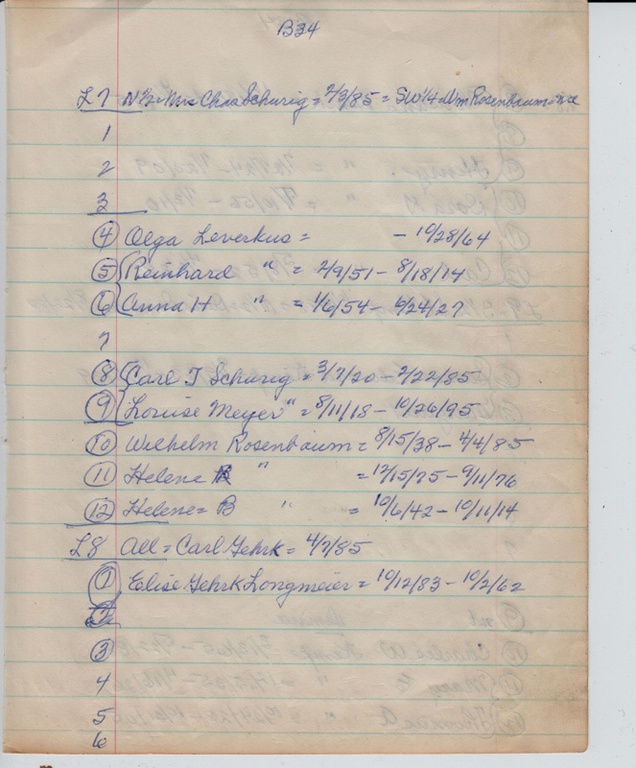 B34
L7 N½ = Mrs Chas Schurig = 2/3/85 = SW¼ = Wm Rosenbaum = nee
1
2
3
4 Olga Leverkus = - 10/28/64
5 Reinhard " = 2/9/51 - 8/18/14
6 Anna H " = 1/6/54 - 6/24/27
7
8 Carl T Schurig = 3/7/20 - 2/22/85
9 Louise Meyer " = 8/11/18 - 10/26/95
10 Wilhelm Rosenbaum = 8/15/38 - 4/4/85
11 Helene " = 12/15/75 - 9/11/76
12 Helene = B " = 10/6/42 - 10/11/14
L8 All = Carl Gehrk = 4/7/85
1 Elise Gehrk Longmeier = 10/12/83 - 10/2/62
2
3
4
5
6